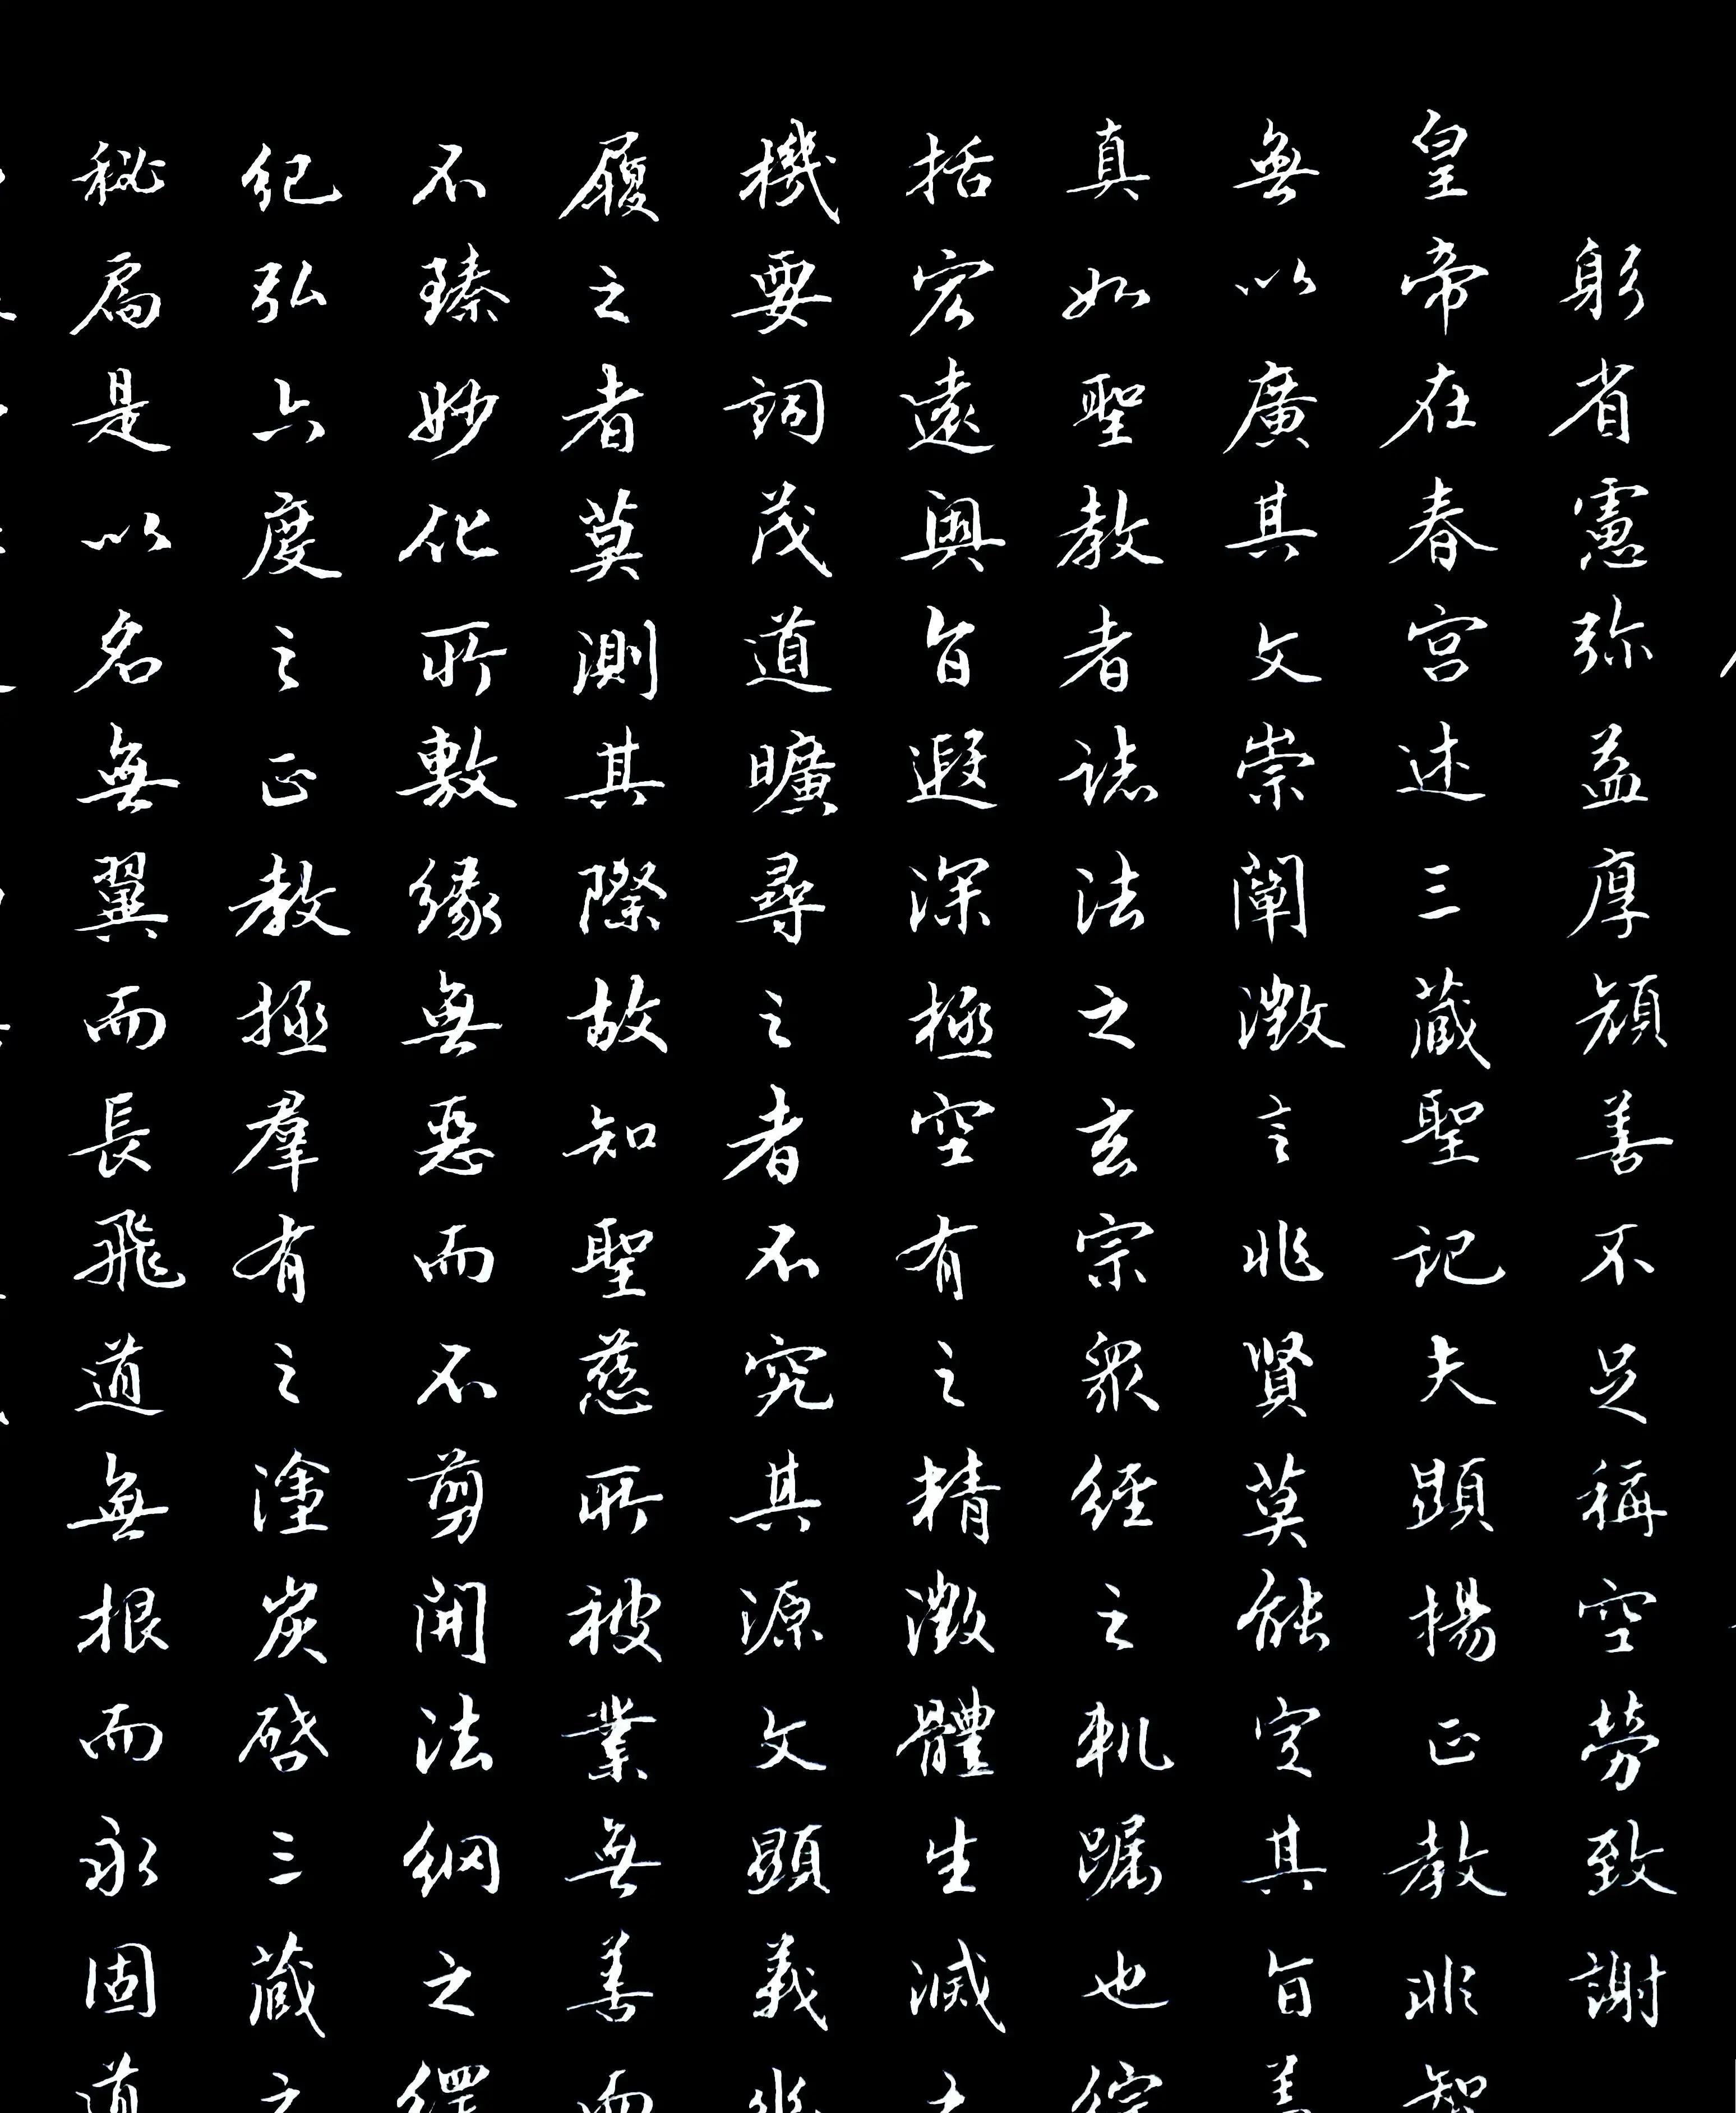 躬省慮弥益厚顔善不足稱空勞致謝
皇帝在春宮述三藏聖記夫顯揚正教非智
無以廣其文崇闡微言非賢莫能定其旨盖
真如聖教者諸法之玄宗衆經之軌躅也綜
括宏遠奧旨遐深極空有之精微體生滅之
機要詞茂道曠尋之者不究其源文顯義幽
履之者莫測其際故知聖慈所被業無善而
不臻妙化所敷緣無惡而不剪開法網之綱
紀弘六度之正教拯羣有之塗炭啓三藏之
秘扃是以名無翼而長飛道無根而永固道